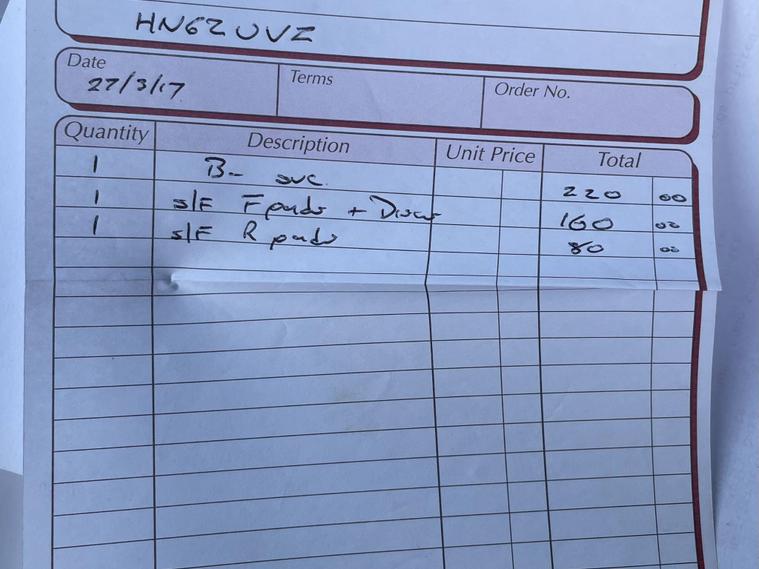 HN62 UVZ
Date Terms Order No.
27/3/17
Quantity Description Unit Price Total
1 B- svc 220 00
1 s/F F pads + Discs 160 00
1 s/F R pads 80 00